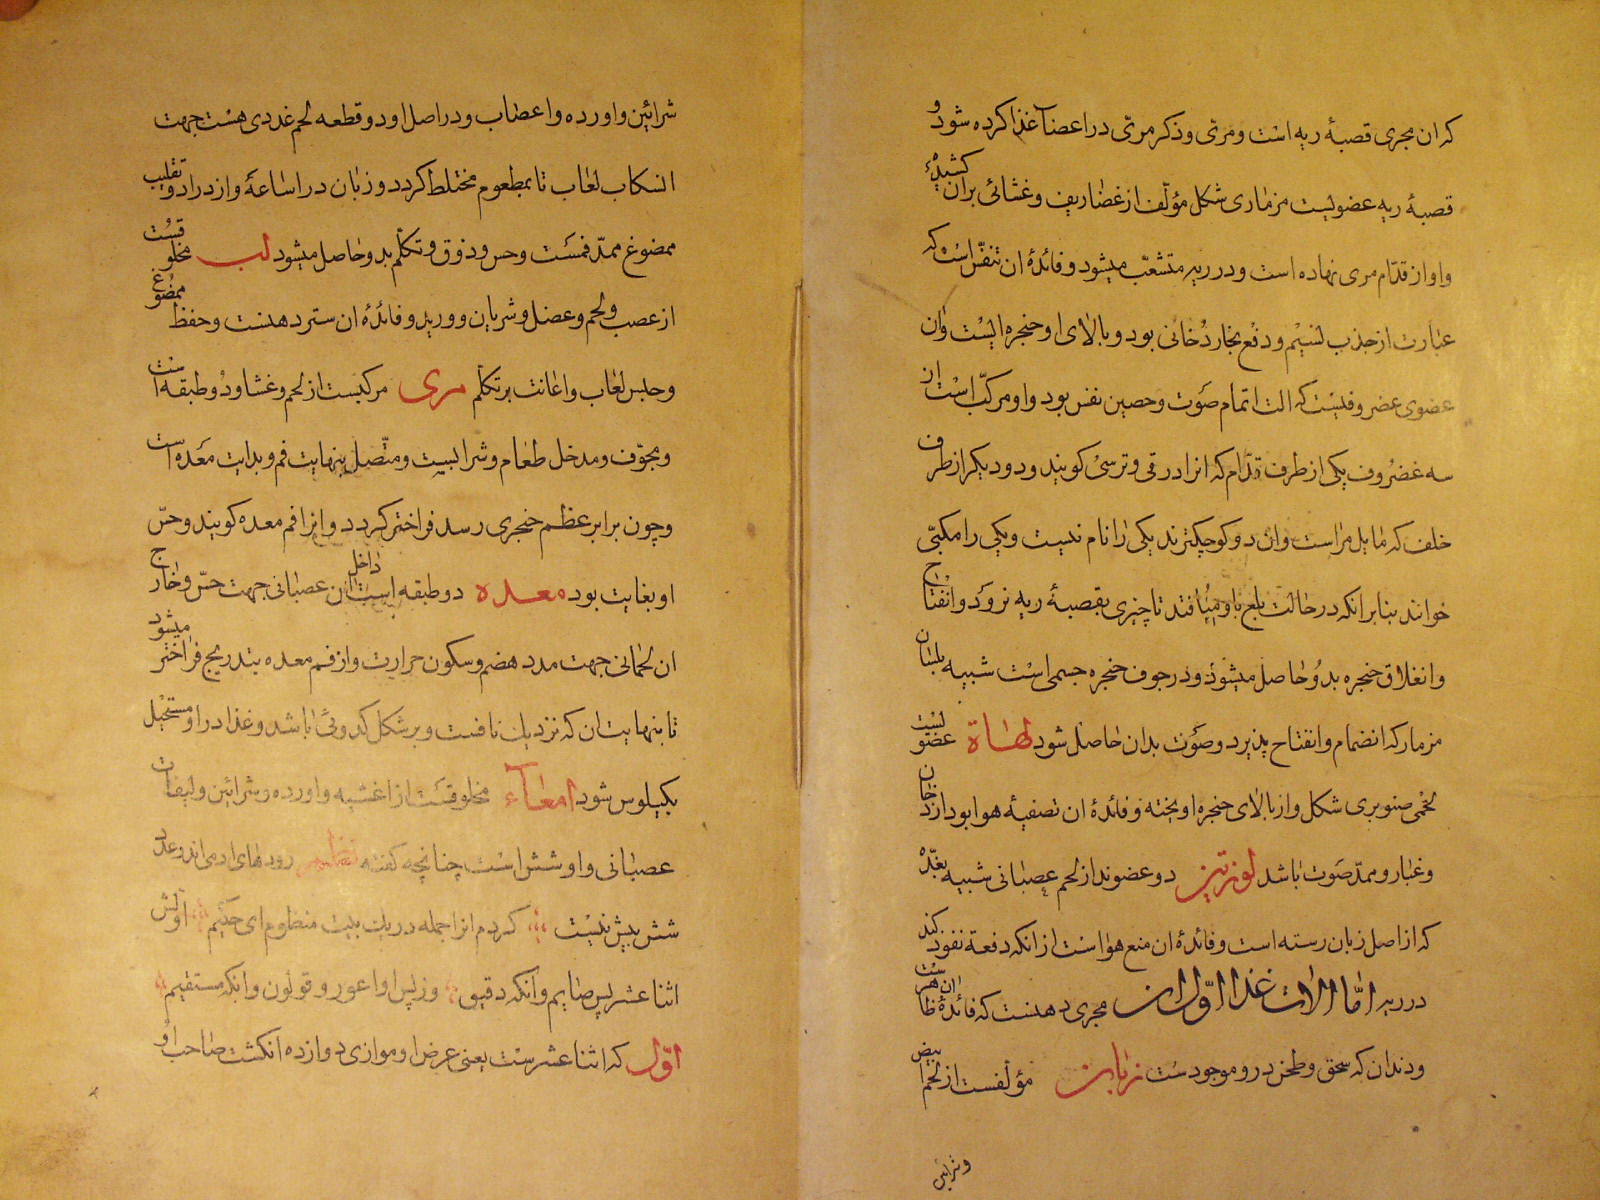 که ان مجری قصبهٔ ریه است ومرئی وذکر مرئی در اعضآ غذا کرده شود و
قصبهٔ ریه عضویست مزماری شکل مؤلف از غضاریف وغشائی بران کشیدهٔ
واو از قدّام مری نهاده است ودر ریه متشعّب میشود وفائدهٔ ان تنفّس است که
عبارت از جذب نسیْم ودفْع بخار دُخانی بود وبالای او حنجره ایسْت وان
عضوی غضروفیست که الت اتمام صَوت وحصین نفس بود واو مرکّب است از
سه غضرُوف یکی از طرف قدّام که انرا درقی وترسیْ کویند ودو دیکر از طرف
خلف که مایل مراست وان دو کوچکترند یکی را نام نیست ویکی را مکبّی
خوانند بنابر انکه در حالت بلع باو میافتد تا چیزی بقصبهٔ ریه نرود وانفتاح
وانغلاق حنجره بدو حاصل میشود ودر جوف حنجره جسمی است شبیه بلسان
مزمار که انضمام وانفتاح پذیرد وصَوت بدان حاصل شود لهاة عضویست
لحمْی صنوبری شکل واز بالای حنجره اویخته وفائدهٔ ان تصفیهٔ هوا بود از دخان
وغبار وممدّ صَوت باشد لوزتین دو عضوند از لحم عصبانی شبیه بغدّهْ
که از اصل زبان رسته است وفائدهٔ ان منع هوا است از انکه دفعة نفوذ کند
در ریه امّا الات غذا اوّل ان مجری دهنست که فائدهٔ ان ظاهرست
ودندان که سحق وطحن درو موجودست زبان مؤلفست از لحم ابیض
وشرایین
شرائین واورده واعصاب ودر اصل او دو قطعه لحم غددی هسْت جهت
انسکاب لعاب تا بمطعوم مختلط کردد وزبان در اساغهٔ واز دراد وتقلیب
ممضوغ ممدّ فمسَت وحس وذوق وتکلّم بدو حاصل میشود لب مخلوقسْت
از عصب ولحم وعضل وشریان وورید وفائدهٔ ان ستر دهنست وحفظ ممضُوغ
وحبس لعاب واعانت بر تکلّم مری مرکبست از لحم وغشا ودو طبقه است
ومجوّف ومدخل طعام وشرابست ومتّصل بنهایت فم وبدایت معَده است
وچون برابر عظم خنجری رسد فراختر کردد وانرا فم معده کویند وحسّ
او بغایت بود معده دو طبقه است داخل ان عصبانی جهت حسّ وخارج
ان لحمانی جهت مدد هضم وسکون حرارت واز فم معده بتدریج فراختر میشود
تا بنهایت ان که نزدیك نافست وبر شکل کدوئی باشد وغذا در او مستحیْل
بکیلوس شود امعآء مخلوقسَت از اغشیه واورده وشرائین ولیفات
عصبانی واو شش است چنانچه کفته رودهای ادمی اندر عدد
شش بیش نیْست کردم انرا جمله در یك بیت منظوم ای حکیْم اولش
اثنا عشر پس صایم وانکه دقیق وز پس او اعور وقولون وانکه مستقیم
اوّل که اثنا عشر ست یعنی عرض او موازی دوازده انکشت صاحب او